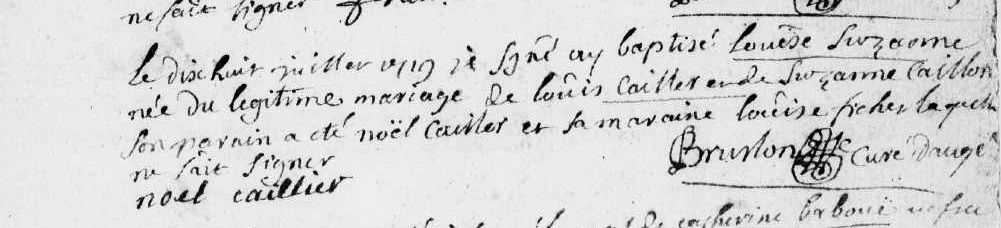 ne sait signer
Le dix huit juillet je signé ay baptisé loüise Suzanne
née du legitime mariage de loüis Cailler et de Suzanne Caillon
son parain a eté noël Cailler et sa maraine loüise ficher laquelle
ne sait signer Bruslon Curé daugé
noel caillier
de catherine baboüe